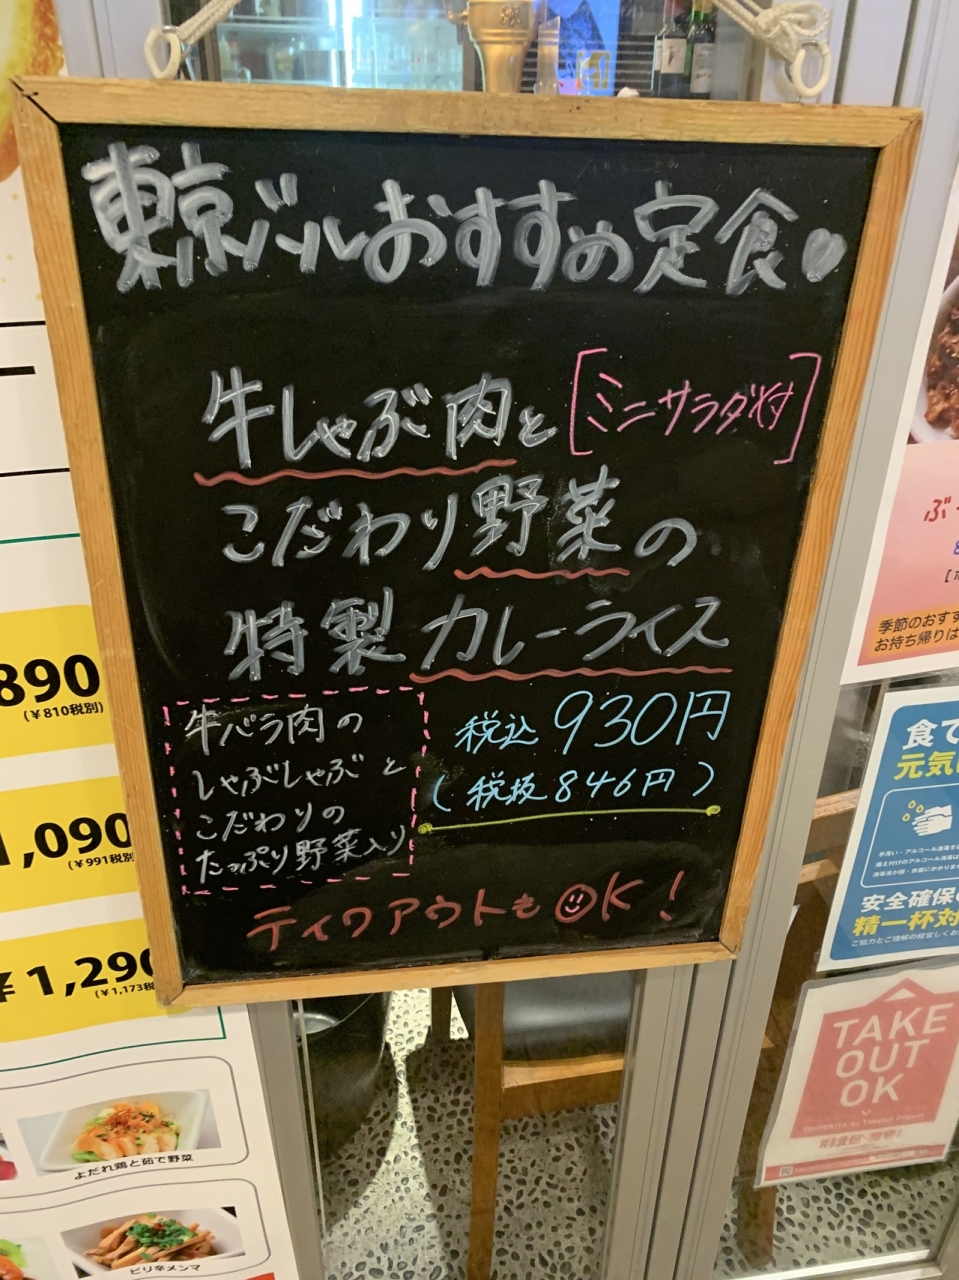 東京バルおすすめ定食♡
牛しゃぶ肉と
[ミニサラダ付]
こだわり野菜の
特製カレーライス
牛バラ肉の
しゃぶしゃぶと
こだわりの
たっぷり野菜入り
税込 930円
(税抜 846円)
ティクアウトも OK!
890
(¥810税別)
1,090
(¥991税別
¥1,290
(¥1,173税
よだれ鶏と茹で野菜
ピリ辛メンマ
ぶ
季節のおすす
お持ち帰りは
食て
元気に
安全確保の
精一杯対
TAKE
OUT
OK